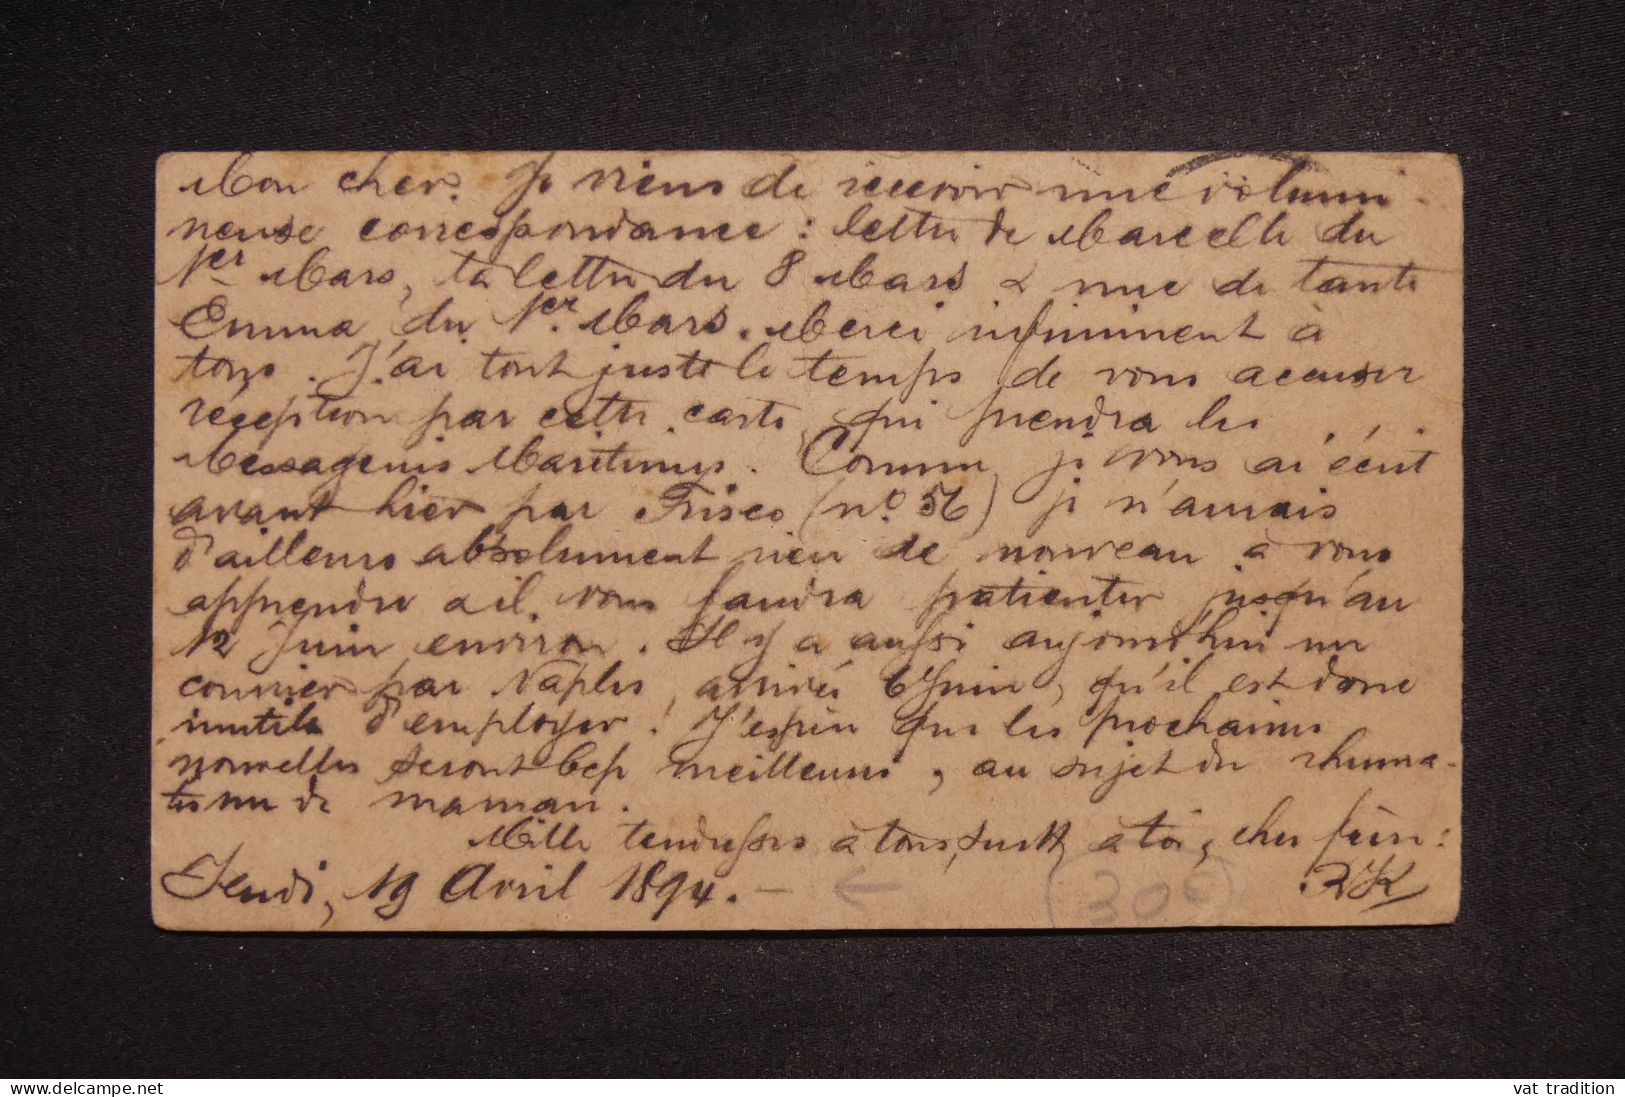 Mon cher. Je viens de recevoir une volumi-
neuse correspondance : lettre de Marcelle du
1er Mars, ta lettre du 8 Mars & une de tante
Emma du 1er Mars. Merci infiniment à
tous. J'ai tout juste le temps de vous accuser
réception par cette carte, qui prendra les
Messageries Maritimes. Comme je vous ai écrit
avant hier par Frisco (no. 56) je n'aurais
d'ailleurs absolument rien de nouveau à vous
apprendre & il vous faudra patienter jusqu'au
12 Juin environ. Il y a aussi aujourd'hui un
courrier par Naples, arrivée 6 Juin, qu'il est donc
inutile d'employer ! J'espère que les prochaines
nouvelles seront bcp meilleures, au sujet du rhuma-
tisme de maman.
Mille tendresses à tous, surtt à toi, cher frère :
Jeudi, 19 Avril 1894. — ←
(300)
vat tradition
www.delcampe.net